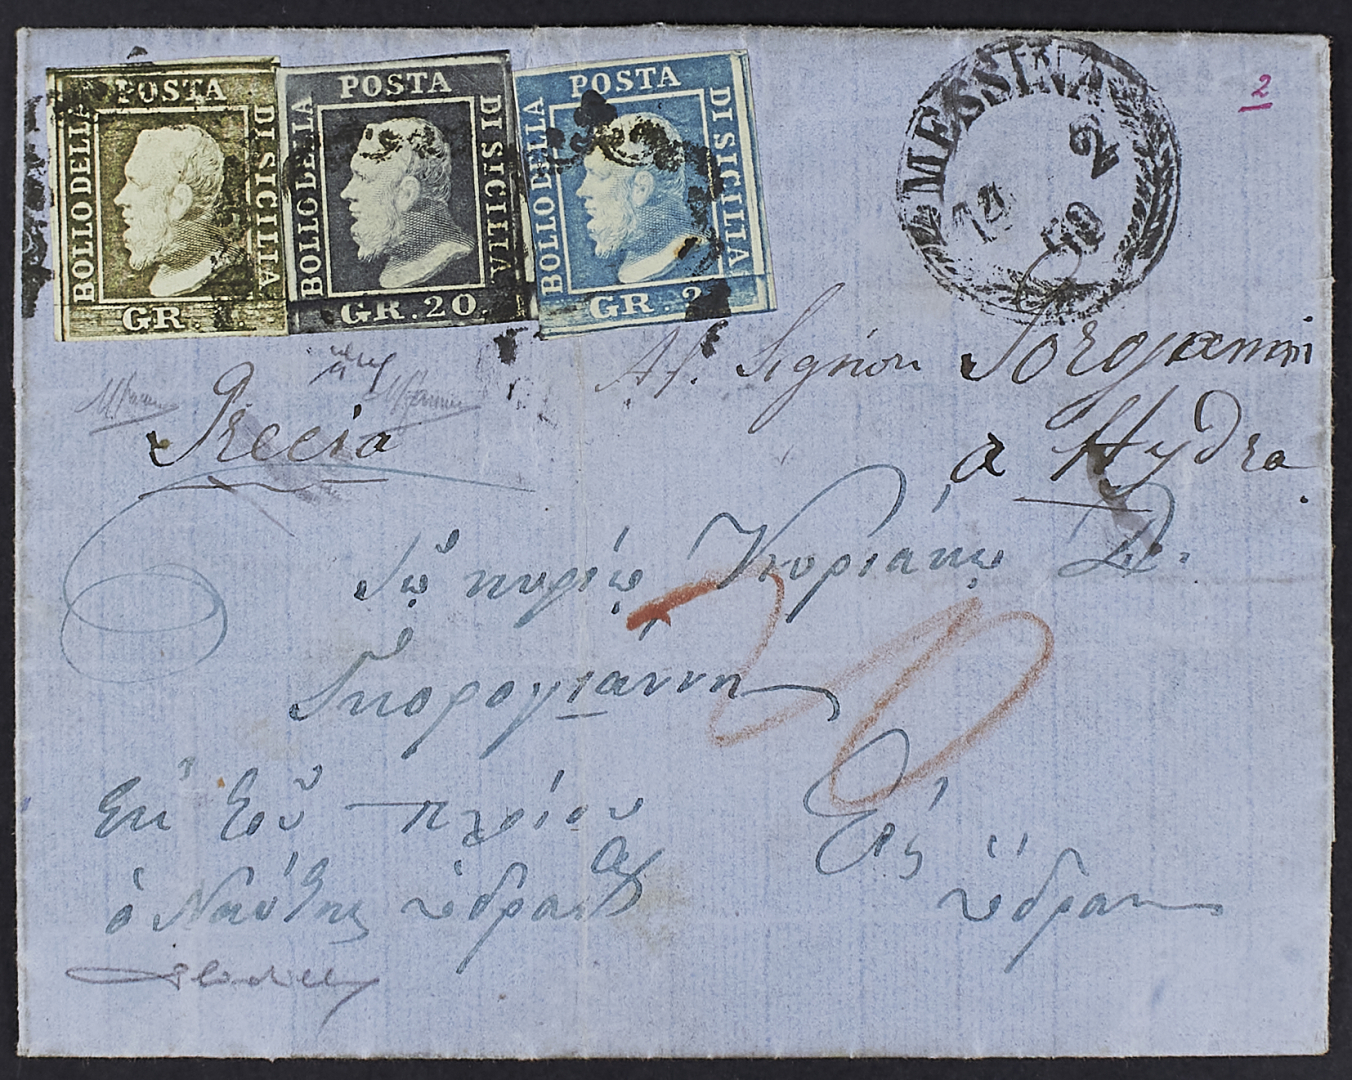 POSTA
BOLLO DELLA
DI SICILIA
GR.
POSTA
BOLLO DELLA
DI SICILIA
GR. 20.
POSTA
BOLLO DELLA
DI SICILIA
GR. 2
MESSINA
14 2
59
2
Al Signor Sorgianni
Grecia
a Hydra
Τῷ κυρίῳ Κυριάκῳ
Σκορογιαννη
Ἐκ τοῦ πλοίου
Εἰς
ὁ Ναύτης
ὕδραν
20